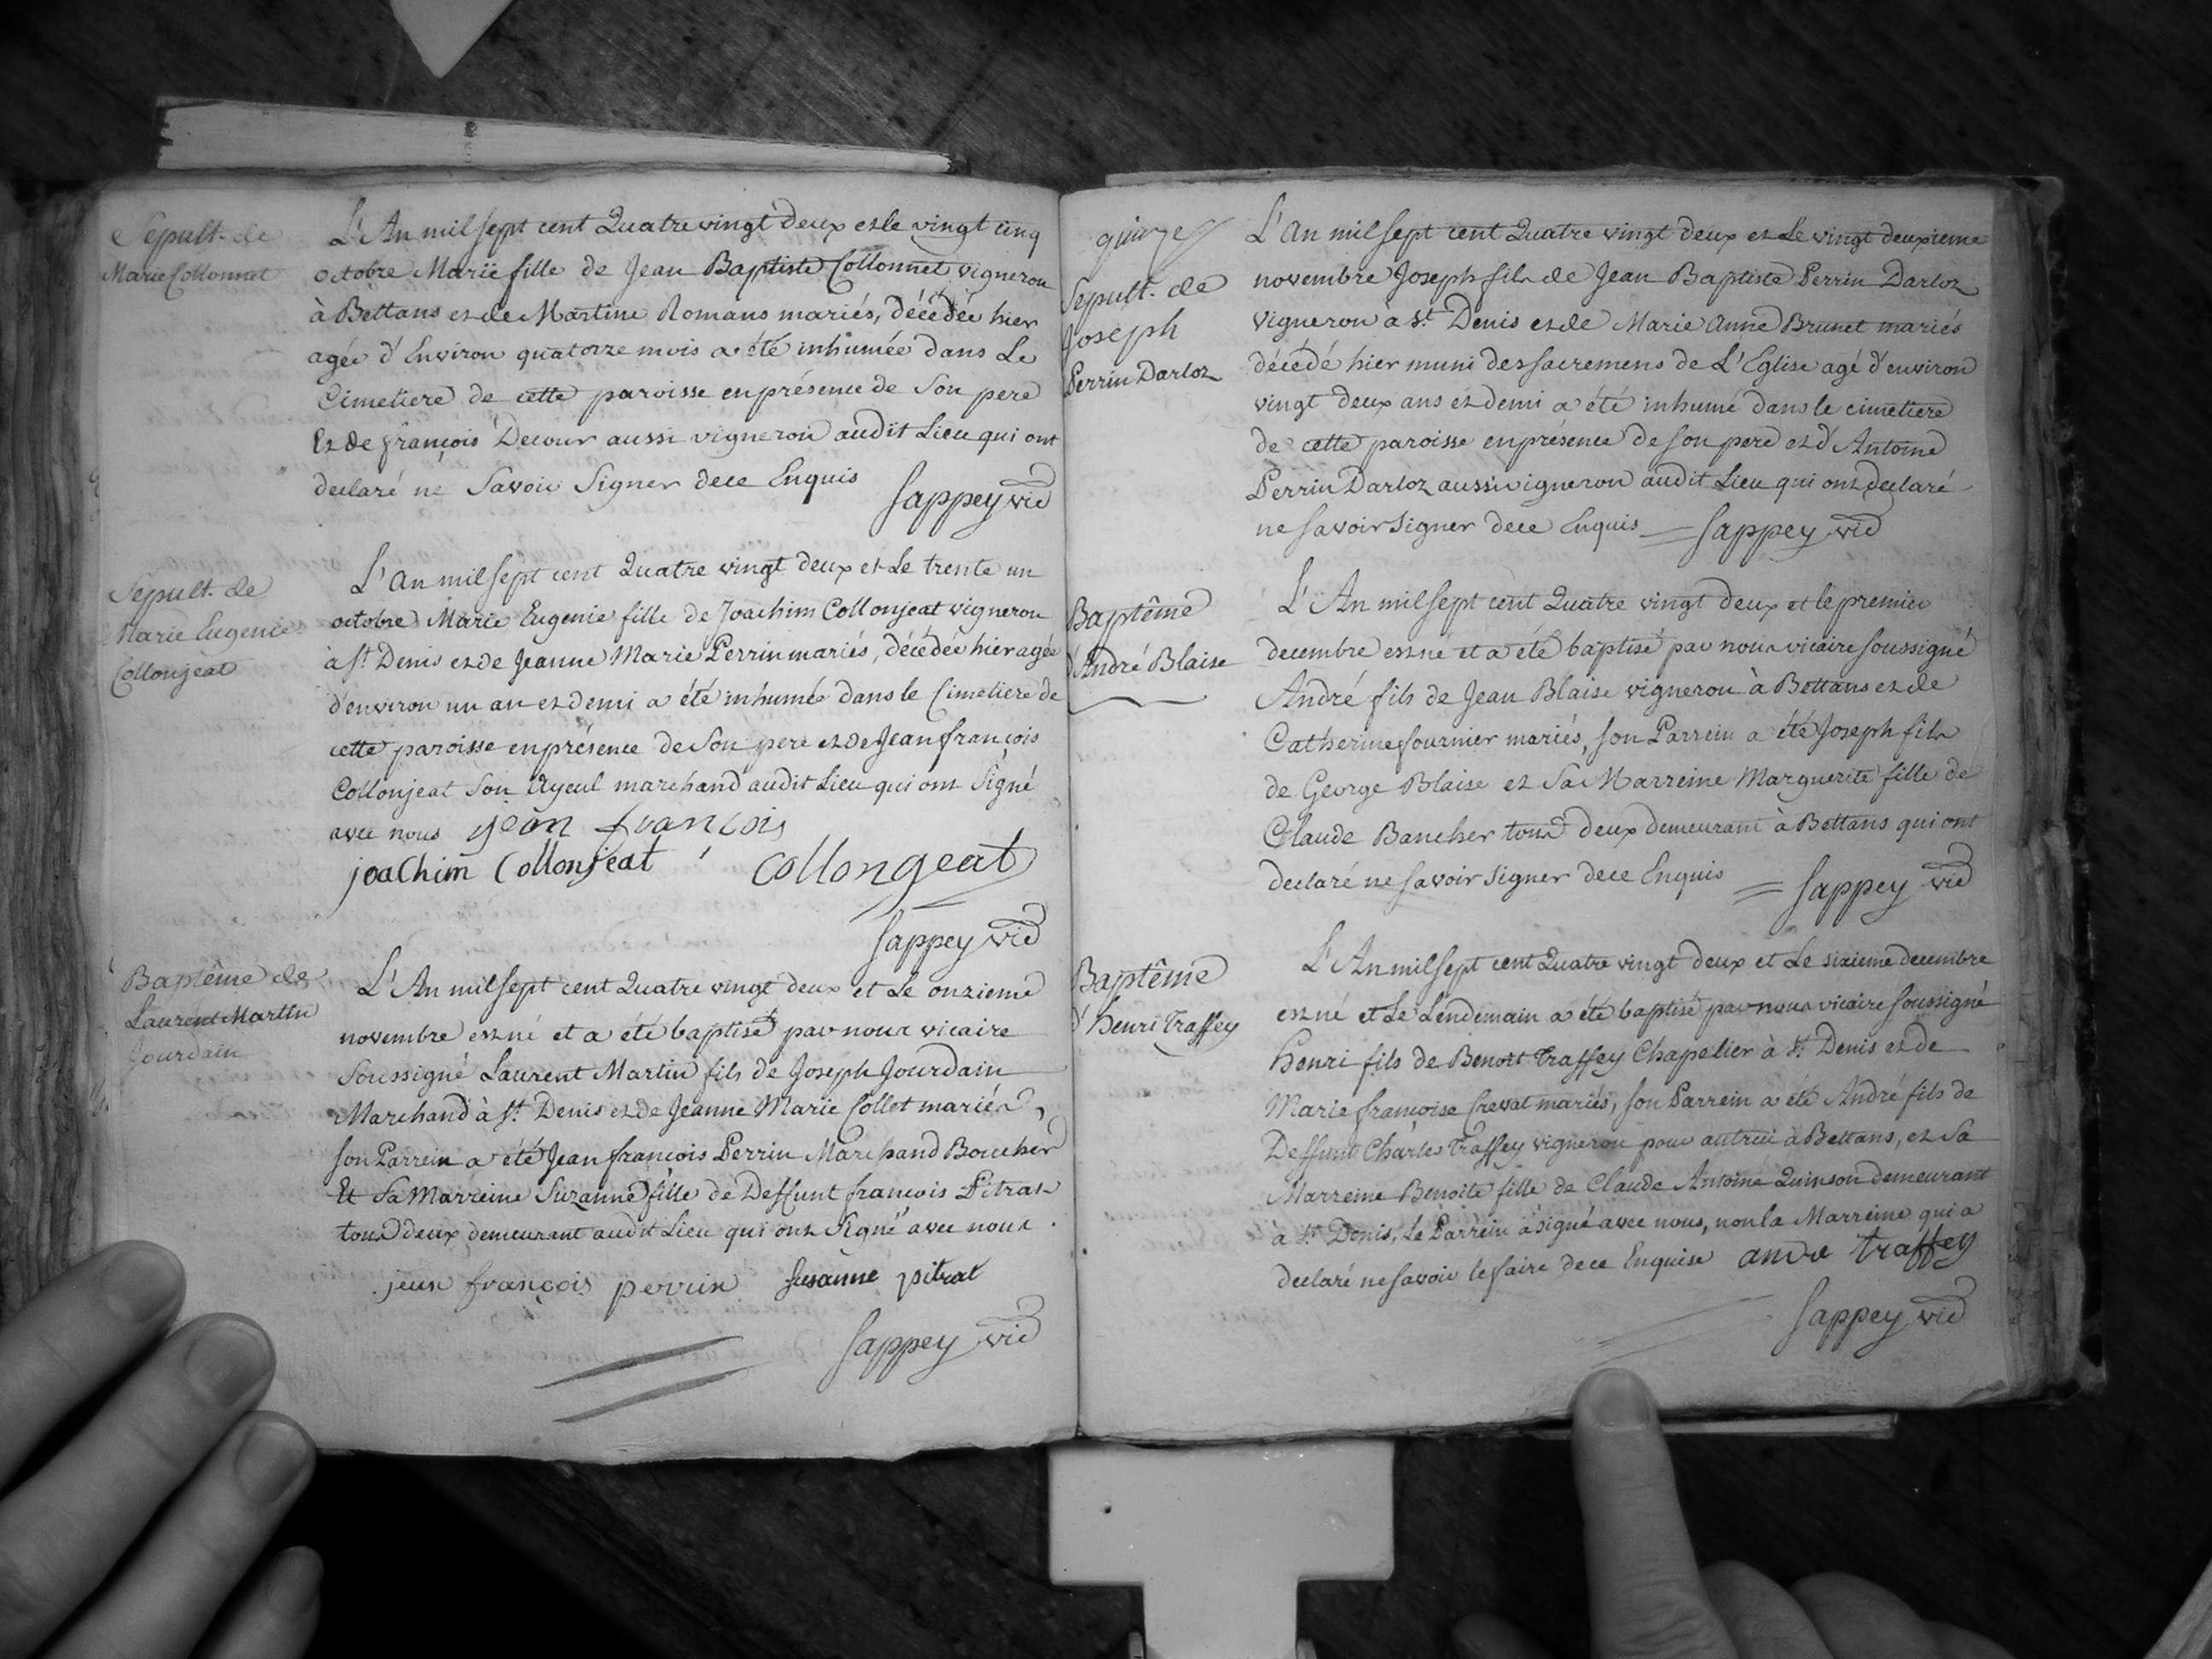 Sepult. de
Marie Collonnet
L'An mil sept cent Quatre vingt deux et le vingt cinq
octobre Marie fille de Jean Baptiste Collonnet vigneron
à Bettans et de Martine Romans mariés, décédée hier
agée d'Environ quatorze mois a été inhumée dans Le
Cimetiere de cette paroisse en présence de Son pere
Et de françois Decour aussi vigneron audit Lieu qui ont
declaré ne Savoir Signer de ce Enquis
Sappey vic
Sepult. de
Marie Eugenie
Collonjeat
L'An mil sept cent Quatre vingt deux et Le trente un
octobre Marie Eugenie fille de Joachim Collonjeat vigneron
à St Denis et de Jeanne Marie Perrin mariés, décédée hier agée
d'environ un an et demi a été inhumée dans le Cimetiere de
cette paroisse en présence de Son pere et de Jean françois
Collonjeat Son Ayeul marchand audit Lieu qui ont Signé
avec nous jean francois
joachim Collonjeat collongeat
Sappey vic
Baptême de
Laurent Martin
Jourdain
L'An mil sept cent Quatre vingt deux et Le onzieme
novembre est né et a été baptisé par nous vicaire
Soussigné Laurent Martin fils de Joseph Jourdain
Marchand à St. Denis et de Jeanne Marie Collet mariés,
son Parrein a été Jean francois Perrin Marchand Boucher
Et Sa Marreine Suzanne fille de Deffunt francois Pitras
tous deux demeurant audit Lieu qui ont Signé avec nous.
jean françois perrin susanne pitrat
Sappey vic
quinze
Sepult. de
Joseph
Perrin Darloz
L'An mil sept cent Quatre vingt deux et Le vingt deuxieme
novembre Joseph fils de Jean Baptiste Perrin Darloz
vigneron à St. Denis et de Marie Anne Brunet mariés
décédé hier muni des sacremens de L'Eglise agé d'environ
vingt deux ans et demi a été inhumé dans le cimetiere
de cette paroisse en présence de son pere et d'Antoine
Perrin Darloz aussi vigneron audit Lieu qui ont declaré
ne savoir signer de ce Enquis Sappey vic
Baptême
d'André Blaise
L'An mil sept cent Quatre vingt deux et le premier
decembre est né et a été baptisé par nous vicaire soussigné
André fils de Jean Blaise vigneron à Bettans et de
Catherine fournier mariés, son Parrein a été Joseph fils
de George Blaise et Sa Marreine Marguerite fille de
Claude Bancher tous deux demeurant à Bettans qui ont
declaré ne savoir signer de ce Enquis Sappey vic
Baptême
d'henri Traffey
L'An mil sept cent Quatre vingt deux et Le sixieme decembre
est né et Le Lendemain a été baptisé par nous vicaire soussigné
henri fils de Benoit Traffey Chapelier à St. Denis et de
Marie francoise Crevat mariés, son Parrein a été André fils de
Deffunt Charles Traffey vigneron pour autrui à Bettans, et Sa
Marreine Benoite fille de Claude Antoine Quinson demeurant
à St. Denis, Le Parrein a signé avec nous, non la Marreine qui a
declaré ne savoir le faire de ce Enquise andre traffey
Sappey vic